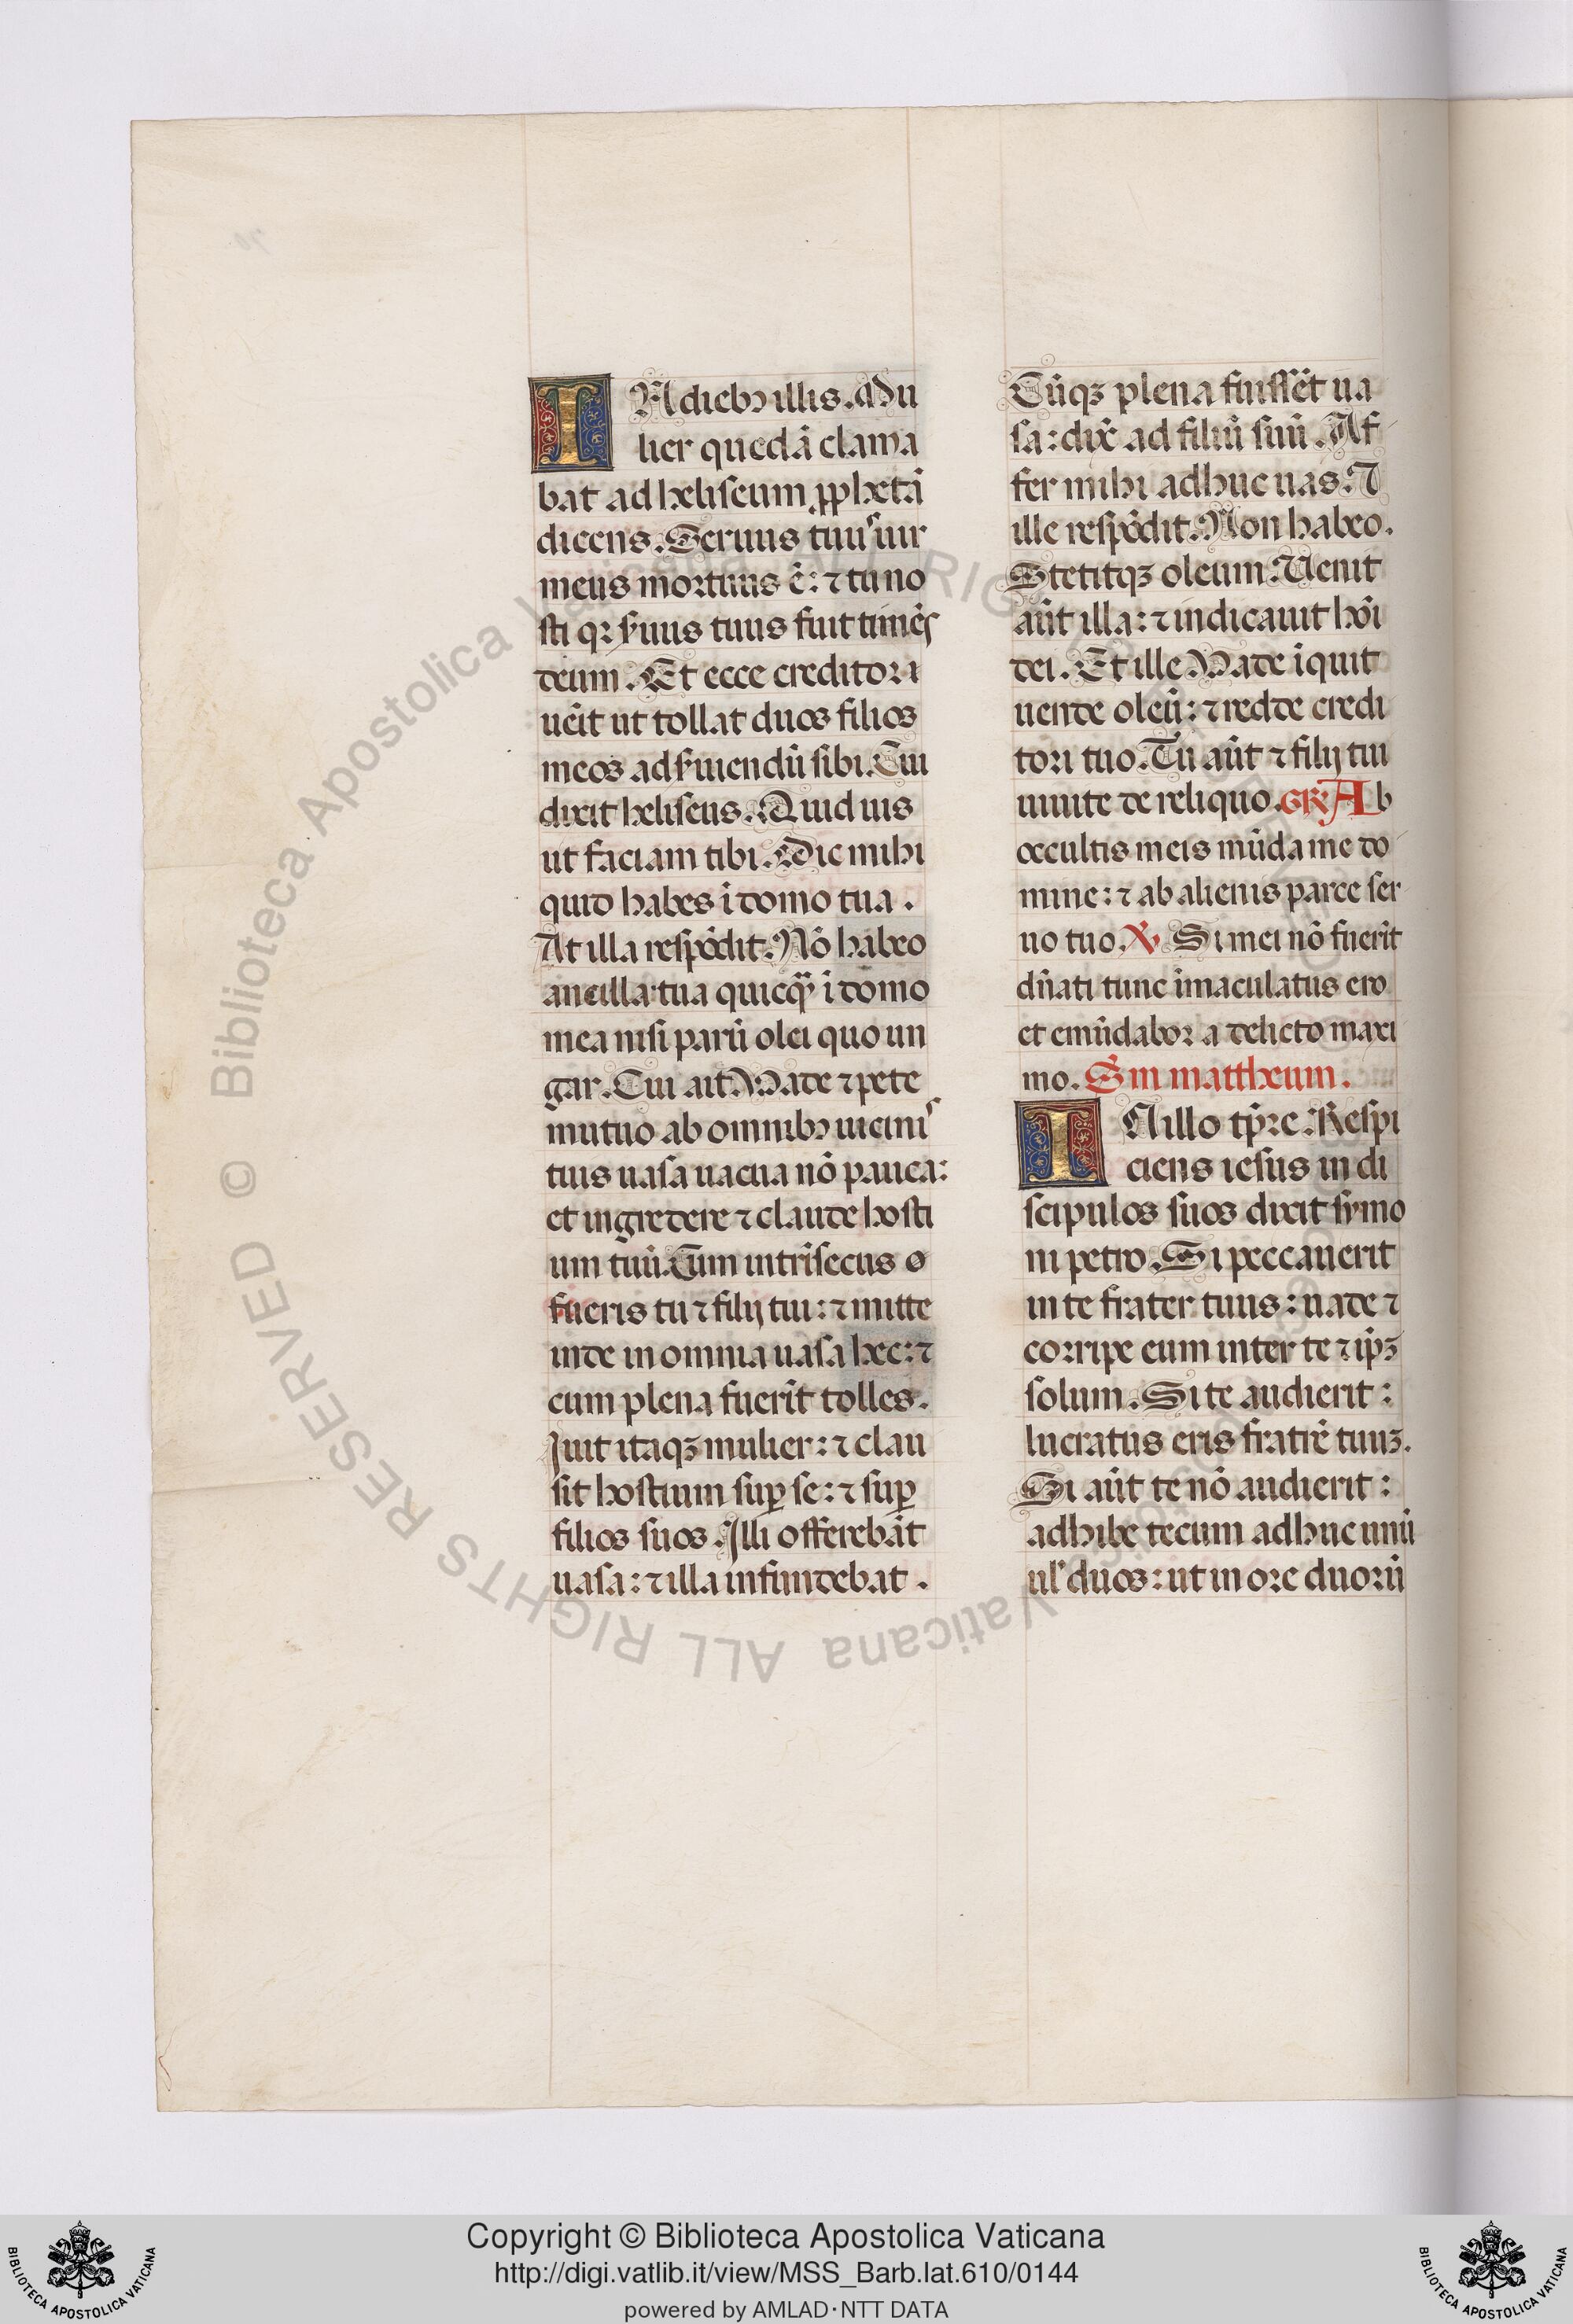 IN dieb; illis. Mu
lier quedã clama
bat ad heliseum ꝓphetã
dicens. Seruus tuus uir
meus mortuus ẽ: ⁊ tu no
sti qꝛ ſ̃uus tuus fuit timẽs
deum. Et ecce creditor
uẽit ut tollat duos filios
meos ad ſ̃uiendũ sibi. Cui
dixit heliseus. Quid uis
ut faciam tibi. Dic mihi
quid habes ĩ domo tua.
At illa respõdit. Nõ habeo
ancilla tua quicqᷓ ĩ domo
mea nisi parũ olei quo un
gar. Cui ait. Vade ⁊ pete
mutuo ab omnib; uicinis
tuis uasa uacua nõ pauca:
et ingredere ⁊ claude hosti
um tuũ. Cum intrĩsecus
fueris tu ⁊ filij tui: ⁊ mitte
inde in omnia uasa hec: ⁊
cum plena fuerĩt tolles.
Iuit itaqꝫ mulier: ⁊ clau
sit hostium suꝑ se: ⁊ suꝑ
filios suos. Illi offerebãt
uasa: ⁊ illa infundebat.
Cũqꝫ plena fuissẽt ua
sa: dix̃ ad filiũ suũ. Af
fer mihi adhuc uas. ⁊
ille respõdit. Non habeo.
Stetitqꝫ oleum. Uenit
aũt illa: ⁊ indicauit hõi
dei. Et ille. Vade ĩquit
uende oleũ: ⁊ redde credi
tori tuo. Tu aũt ⁊ filij tui
uiuite de reliquo. GR̃. Ab
occultis meis mũda me do
mine: ⁊ ab alienis parce ser
uo tuo. ℣. Si mei nõ fuerĩt
dñati tunc ĩmaculatus ero
et emũdabor a delicto maxi
mo. S̃m mattheum.
IN illo tp̃re. Respi
ciens iesus in di
scipulos suos dixit symo
ni petro. Si peccauerit
in te frater tuus: uade ⁊
corripe eum inter te ⁊ ip̃ꝫ
solum. Si te audierit:
lucratus eris fratrẽ tuuꝫ.
Si aũt te nõ audierit:
adhibe tecum adhuc unũ
ul̓ duos: ut in ore duorũ
© Biblioteca Apostolica Vaticana ALL RIGHTS RESERVED
Copyright © Biblioteca Apostolica Vaticana
http://digi.vatlib.it/view/MSS_Barb.lat.610/0144
powered by AMLAD·NTT DATA
BIBLIOTECA APOSTOLICA VATICANA
BIBLIOTECA APOSTOLICA VATICANA